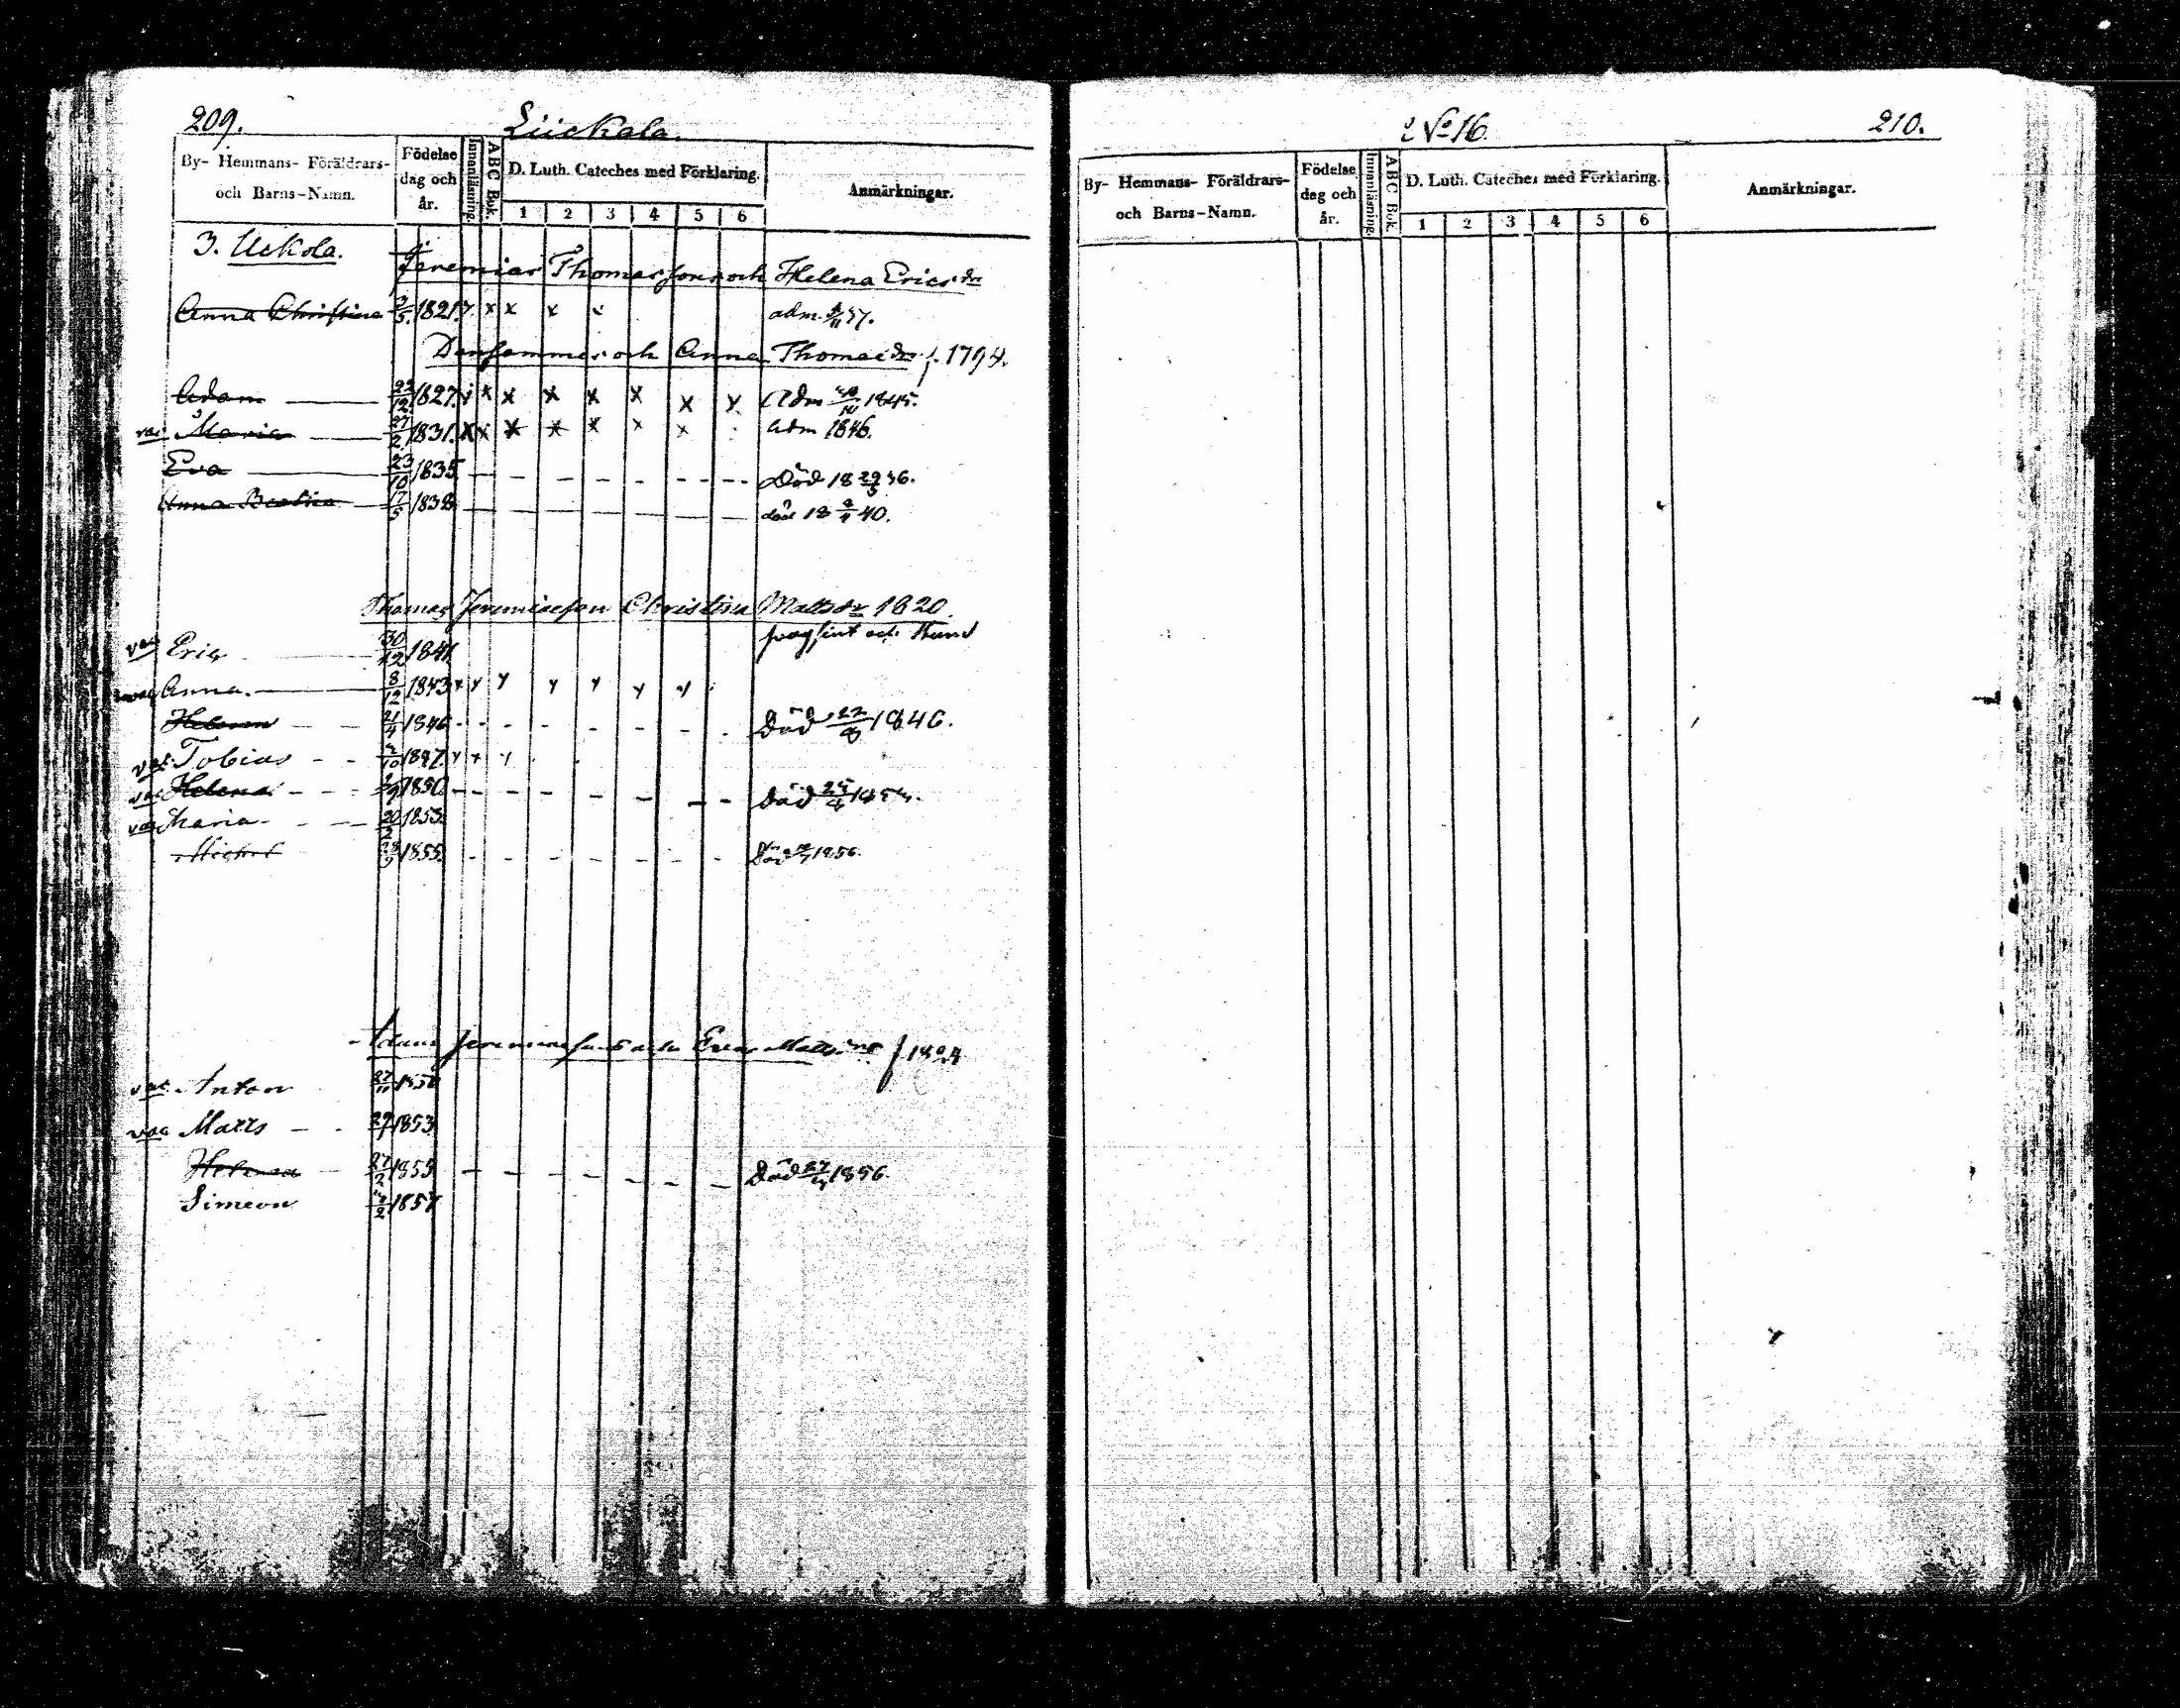 209.
Liickala.
By- Hemmans- Föräldrars- och Barns-Namn.
Födelse dag och år.
Innanläsning.
ABC Bok.
D. Luth. Cateches med Förklaring.
1 2 3 4 5 6
Anmärkningar.
3. Uckola.
Jeremias Thomasson och Helena Ericsdr
Anna Christina 3/5 1821. x x x x adm.
Densamme och Anna Thomaedr f. 1794.
Adam 22/12 1827. x x x x x x x Adm 1845.
vac Maria 27/2 1831. x x x x x x x adm 1846.
Eva 23/10 1835 Död 18 29/5 36.
Anna 17/5 1838 död 18 40.
Thomas Jeremiasson Christina Mattsdr 1820.
och
vac Eric 30/12 1841
Anna. 8/12 1843 x x x x x x x
Helena 21/4 1846 Död 22/8 1846.
vac Tobias /10 1847 x x x
vac Helena 1850 Död
vac Maria 20/2 1853
Michel 28/9 1855 Död 1856.
Adam Jeremiasson och Eva Mattsdr f 1824
vac Anton 27/11
vac Matts 29/7 1853
Helena 27/2 1855 Död 1856.
Simeon /2 1857
No 16.
210.
By- Hemmans- Föräldrars- och Barns-Namn.
Födelse dag och år.
Innanläsning.
ABC Bok.
D. Luth. Cateches med Förklaring.
1 2 3 4 5 6
Anmärkningar.